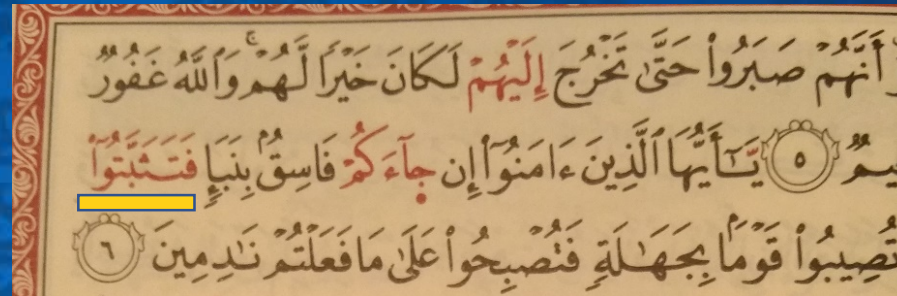 أَنَّهُمْ صَبَرُوا۟ حَتَّىٰ تَخْرُجَ إِلَيْهُمْ لَكَانَ خَيْرًا لَّهُمْۚ وَٱللَّهُ غَفُورٌ
يمٌ ٥ يَٰٓأَيُّهَا ٱلَّذِينَ ءَامَنُوٓا۟ إِن جَآءَكُمْ فَاسِقُۢ بِنَبَإٍ فَتَثَبَّتُوٓا۟
تُصِيبُوا۟ قَوْمَۢا بِجَهَٰلَةٍ فَتُصْبِحُوا۟ عَلَىٰ مَا فَعَلْتُمْ نَٰدِمِينَ ٦